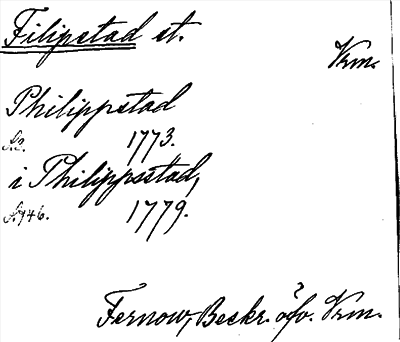 Filipstad st.
Vrm.
Philippstad
S. 2. 1773.
i Philippsstad,
S. 746. 1779.
?
Fernow, Beskr. öfv. Vrm.